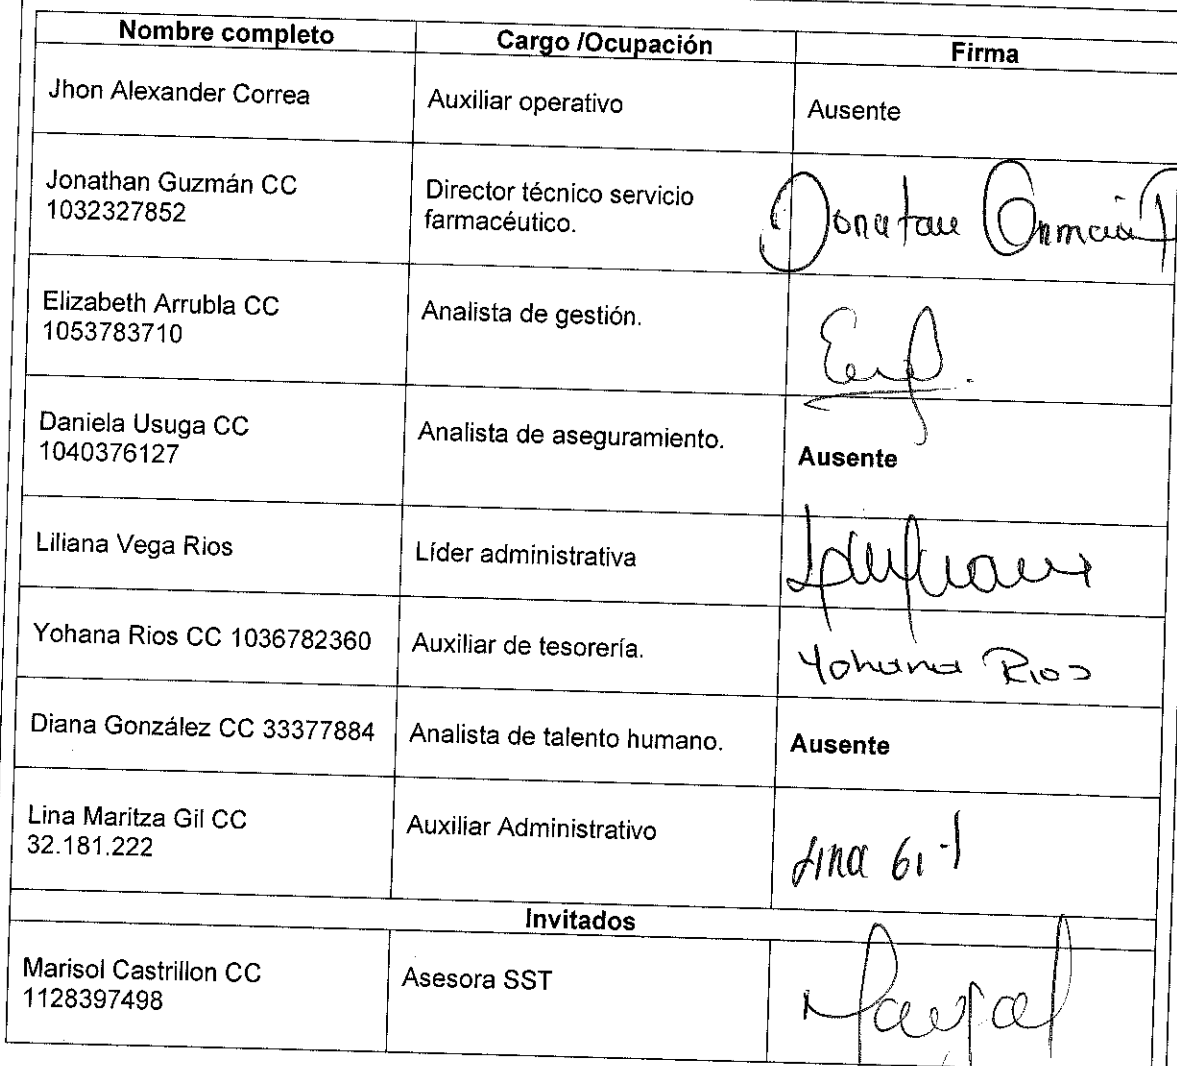 Nombre completo Cargo /Ocupación Firma
Jhon Alexander Correa Auxiliar operativo Ausente
Jonathan Guzmán CC
1032327852
Director técnico servicio
farmacéutico.
Jonatan
Elizabeth Arrubla CC
1053783710
Analista de gestión.
Daniela Usuga CC
1040376127
Analista de aseguramiento.
Ausente
Liliana Vega Rios Líder administrativa
Yohana Rios CC 1036782360 Auxiliar de tesorería. Yohana Rios
Diana González CC 33377884 Analista de talento humano. Ausente
Lina Maritza Gil CC
32.181.222
Auxiliar Administrativo
Lina Gil
Invitados
Marisol Castrillon CC
1128397498
Asesora SST